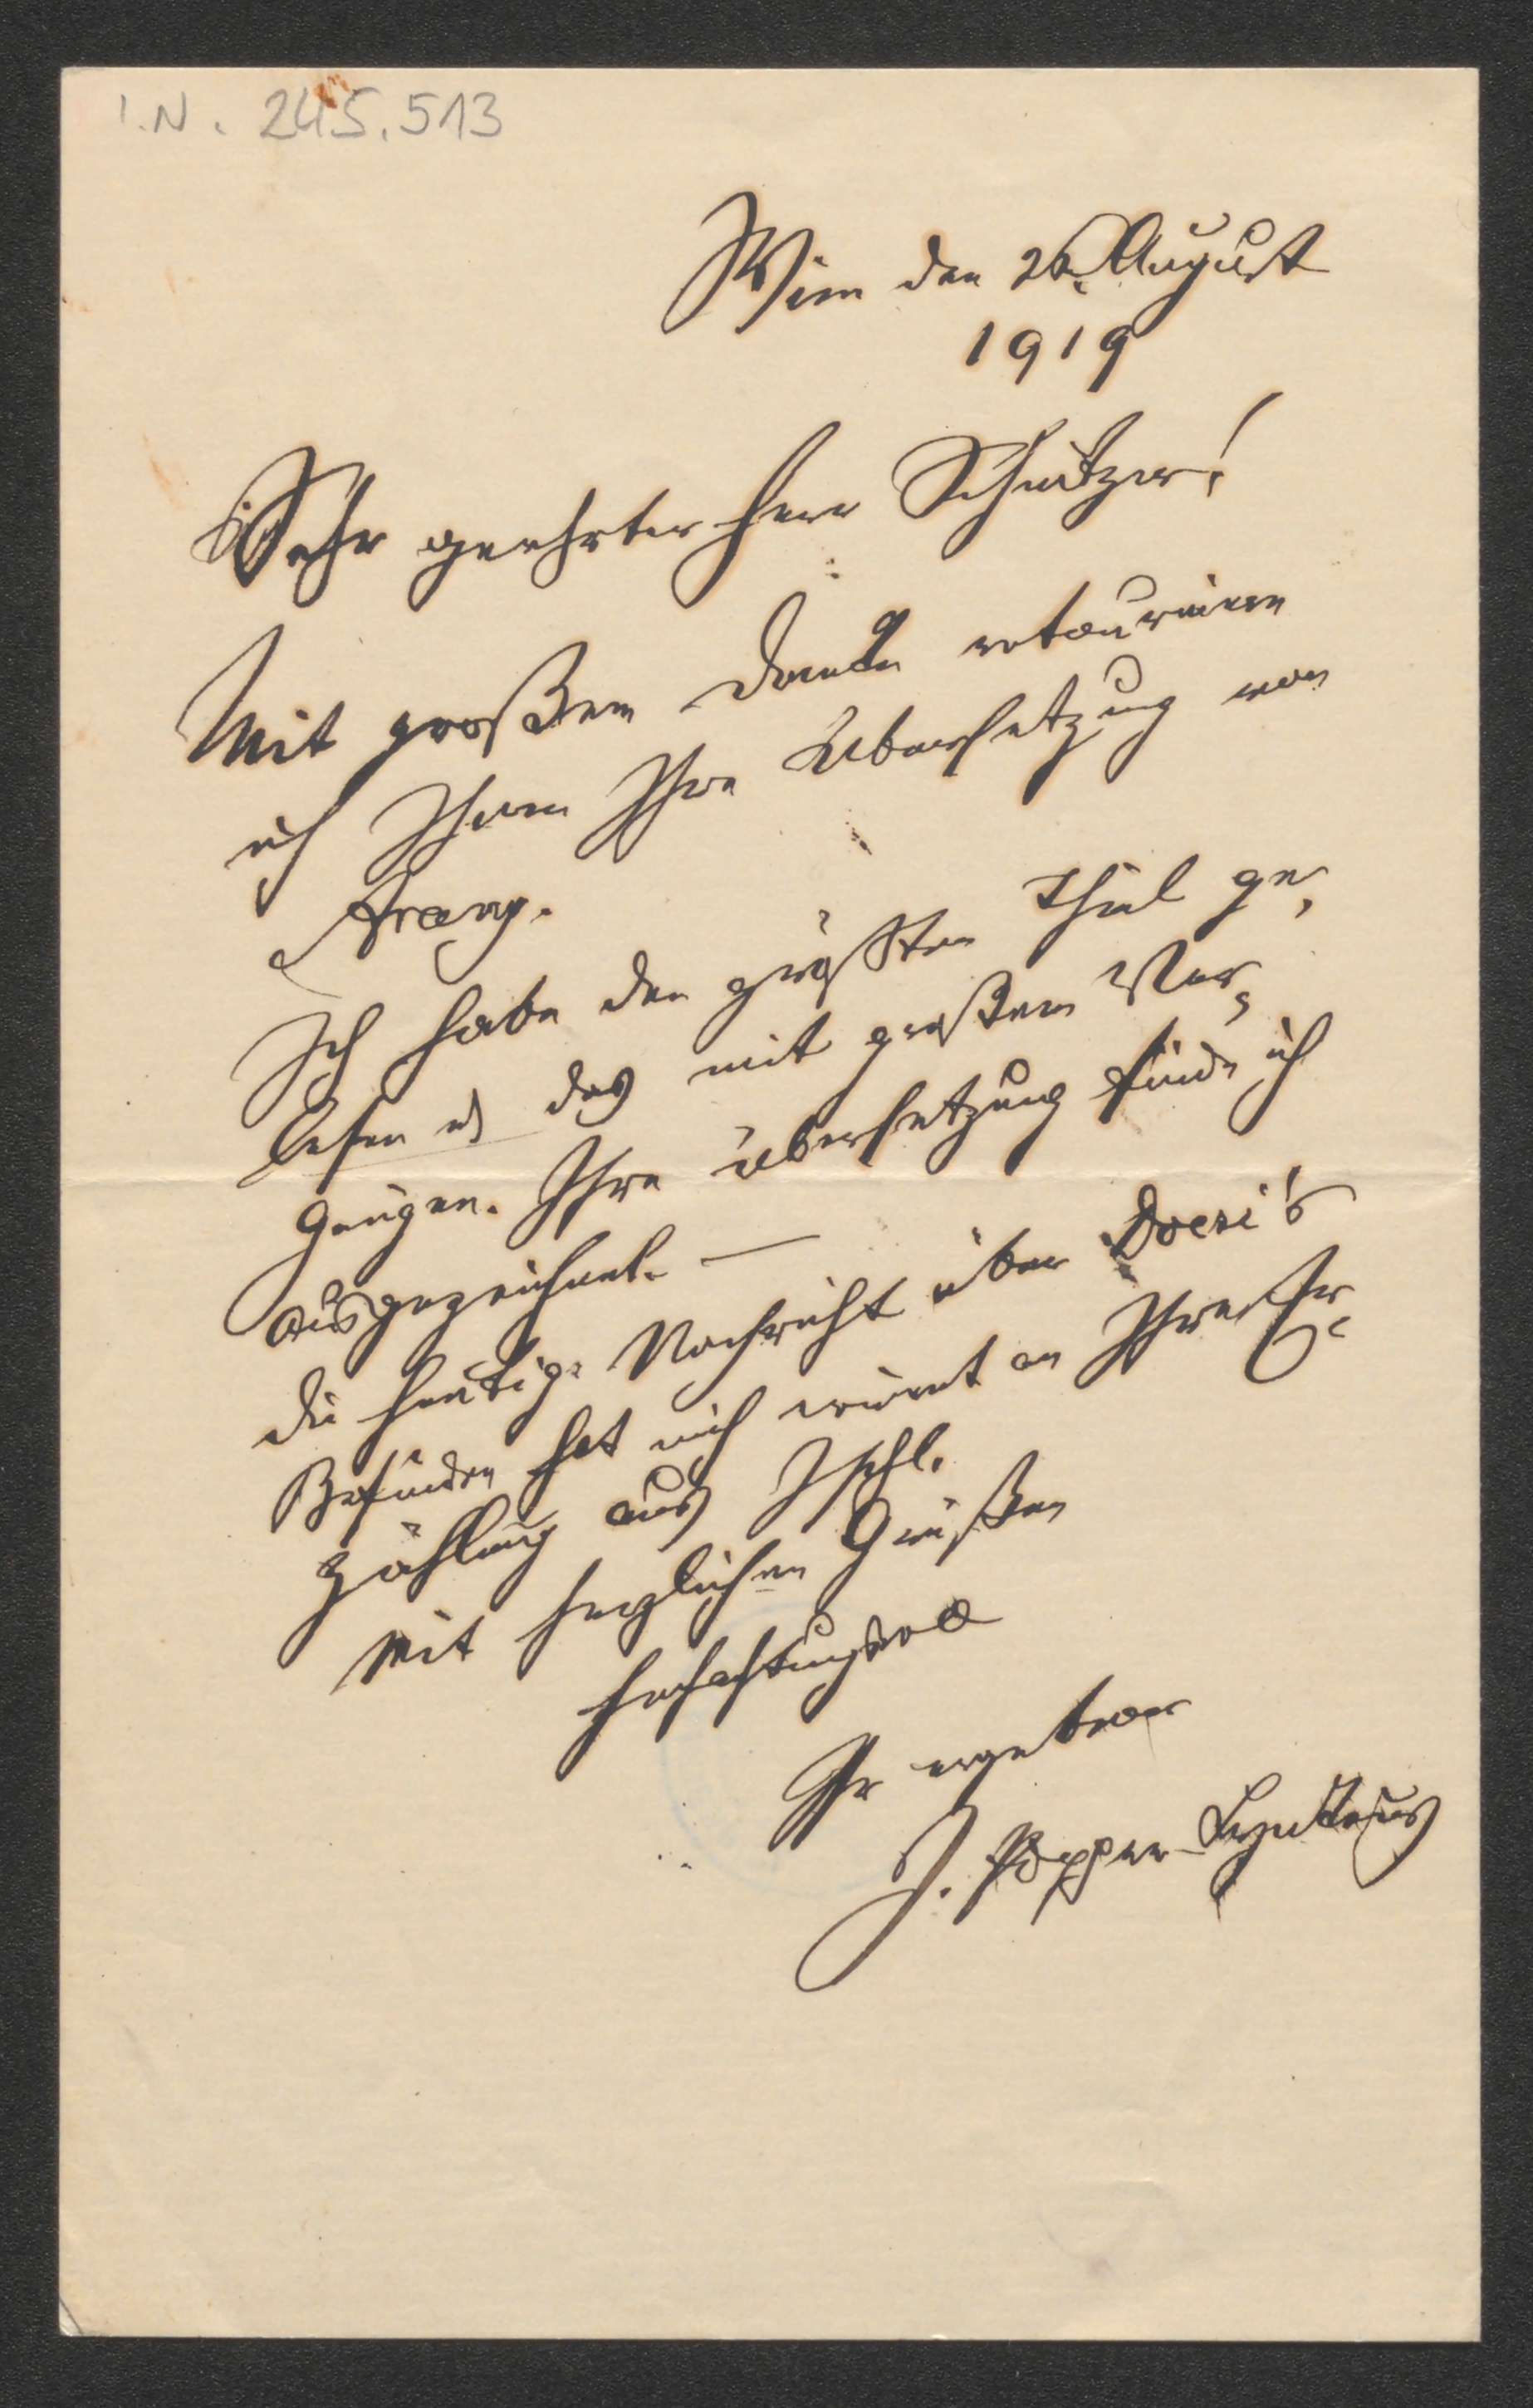 I.N. 245.513
Wien den 26. August
1919
Sehr geehrter Herr Schnitzer!
Mit großem Danke retourniere
ich Ihnen Ihre Übersetzung von
Arany.
Ich habe den größten Theil ge-
lesen u. das mit großem Ver-
gnügen. Ihre Übersetzung finde ich
ausgezeichnet. —
Die heutige Nachricht über Doczi's
Befinden hat mich erinnert an Ihre Er-
zählung aus Ischl.
Mit herzlichen Grüßen
hochachtungsvoll
Ihr ergebener
J. Popper-Lynkeus